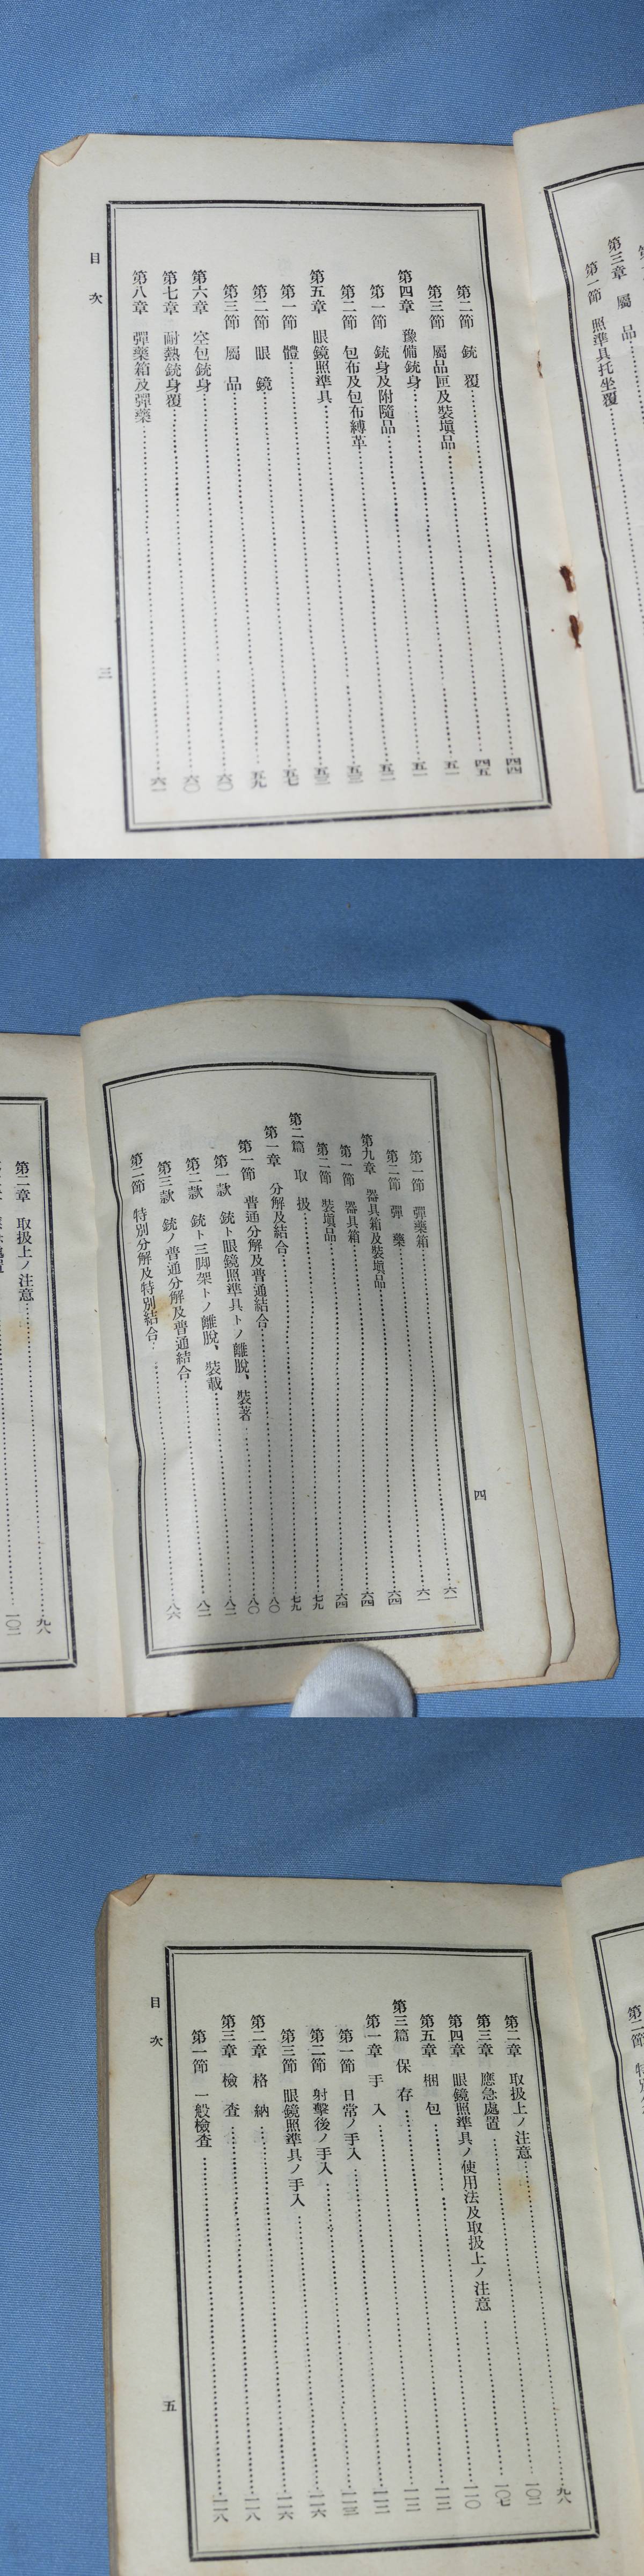 第三章 屬品
第一節 照準具托坐覆
第二節 銃覆 四四
第三節 屬品匣及裝塡品 四五
第四章 豫備銃身 五一
第一節 銃身及附隨品 五一
第二節 包布及包布縛革 五二
第五章 眼鏡照準具 五三
第一節 體 五三
第二節 眼鏡 五七
第三節 屬品 五九
第六章 空包銃身 六〇
第七章 耐熱銃身覆 六〇
第八章 彈藥箱及彈藥 六一
目次
三
四
第一節 彈藥箱 六一
第二節 彈藥 六一
第九章 器具箱及裝塡品 六四
第一節 器具箱 六四
第二節 裝塡品 六四
第二篇 取扱 七九
第一章 分解及結合 七九
第一節 普通分解及普通結合 八〇
第一款 銃ト眼鏡照準具トノ離脫、裝著 八〇
第二款 銃ト三脚架トノ離脫、裝載 八二
第三款 銃ノ普通分解及普通結合 八二
第二節 特別分解及特別結合 八六
第二章 取扱上ノ注意 九八
一〇二
第二章 取扱上ノ注意 九八
第三章 應急處置 一〇二
第四章 眼鏡照準具ノ使用法及取扱上ノ注意 一〇七
第五章 梱包 一一〇
第三篇 保存 一一二
第一章 手入 一一二
第一節 日常ノ手入 一一二
第二節 射擊後ノ手入 一一三
第三節 眼鏡照準具ノ手入 一一六
第二章 格納 一一六
第三章 檢査 一一八
第一節 一般檢査 一一八
目次
五